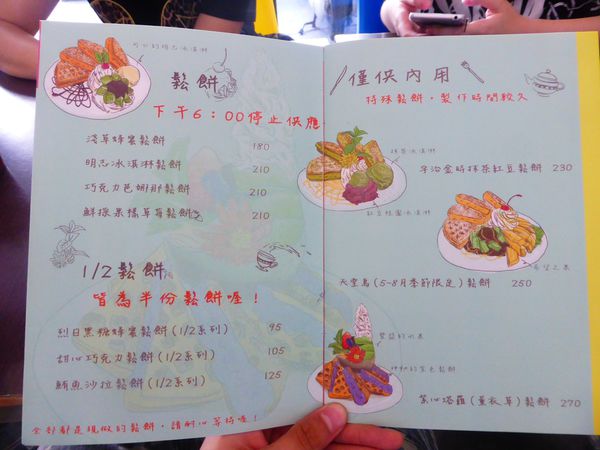 可口的明志冰淇淋
鬆餅
下午6：00停止供應
淺草蜂蜜鬆餅 180
明志冰淇淋鬆餅 210
巧克力芭娜那鬆餅 210
鮮採果橘草莓鬆餅 210
1/2鬆餅
皆為半份鬆餅喔！
烈日黑糖蜂蜜鬆餅(1/2系列) 95
甜心巧克力鬆餅(1/2系列) 105
鮪魚沙拉鬆餅(1/2系列) 125
全部都是現做的鬆餅，請耐心等待喔！
僅供內用
特殊鬆餅，製作時間較久
抹茶冰淇淋
宇治金時抹茶紅豆鬆餅 230
紅豆桂圓冰淇淋
希望之果
天堂鳥(5-8月季節限定)鬆餅 250
豐盛的水果
紫心塔羅(薰衣草)鬆餅 270